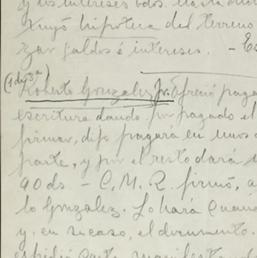 y los intereses
hipoteca del terreno
zar saldos é intereses. —
(1 de 3ª)
Roberto Gonzalez Jr. ofreció pagar
escritura dando por pagado el
firmar, dijo pagará en unos
parte, y por el resto dará
90 ds — C. M. R. firmó, a
lo Gonzalez. Lo hará cuan
y, en su caso, el documento.